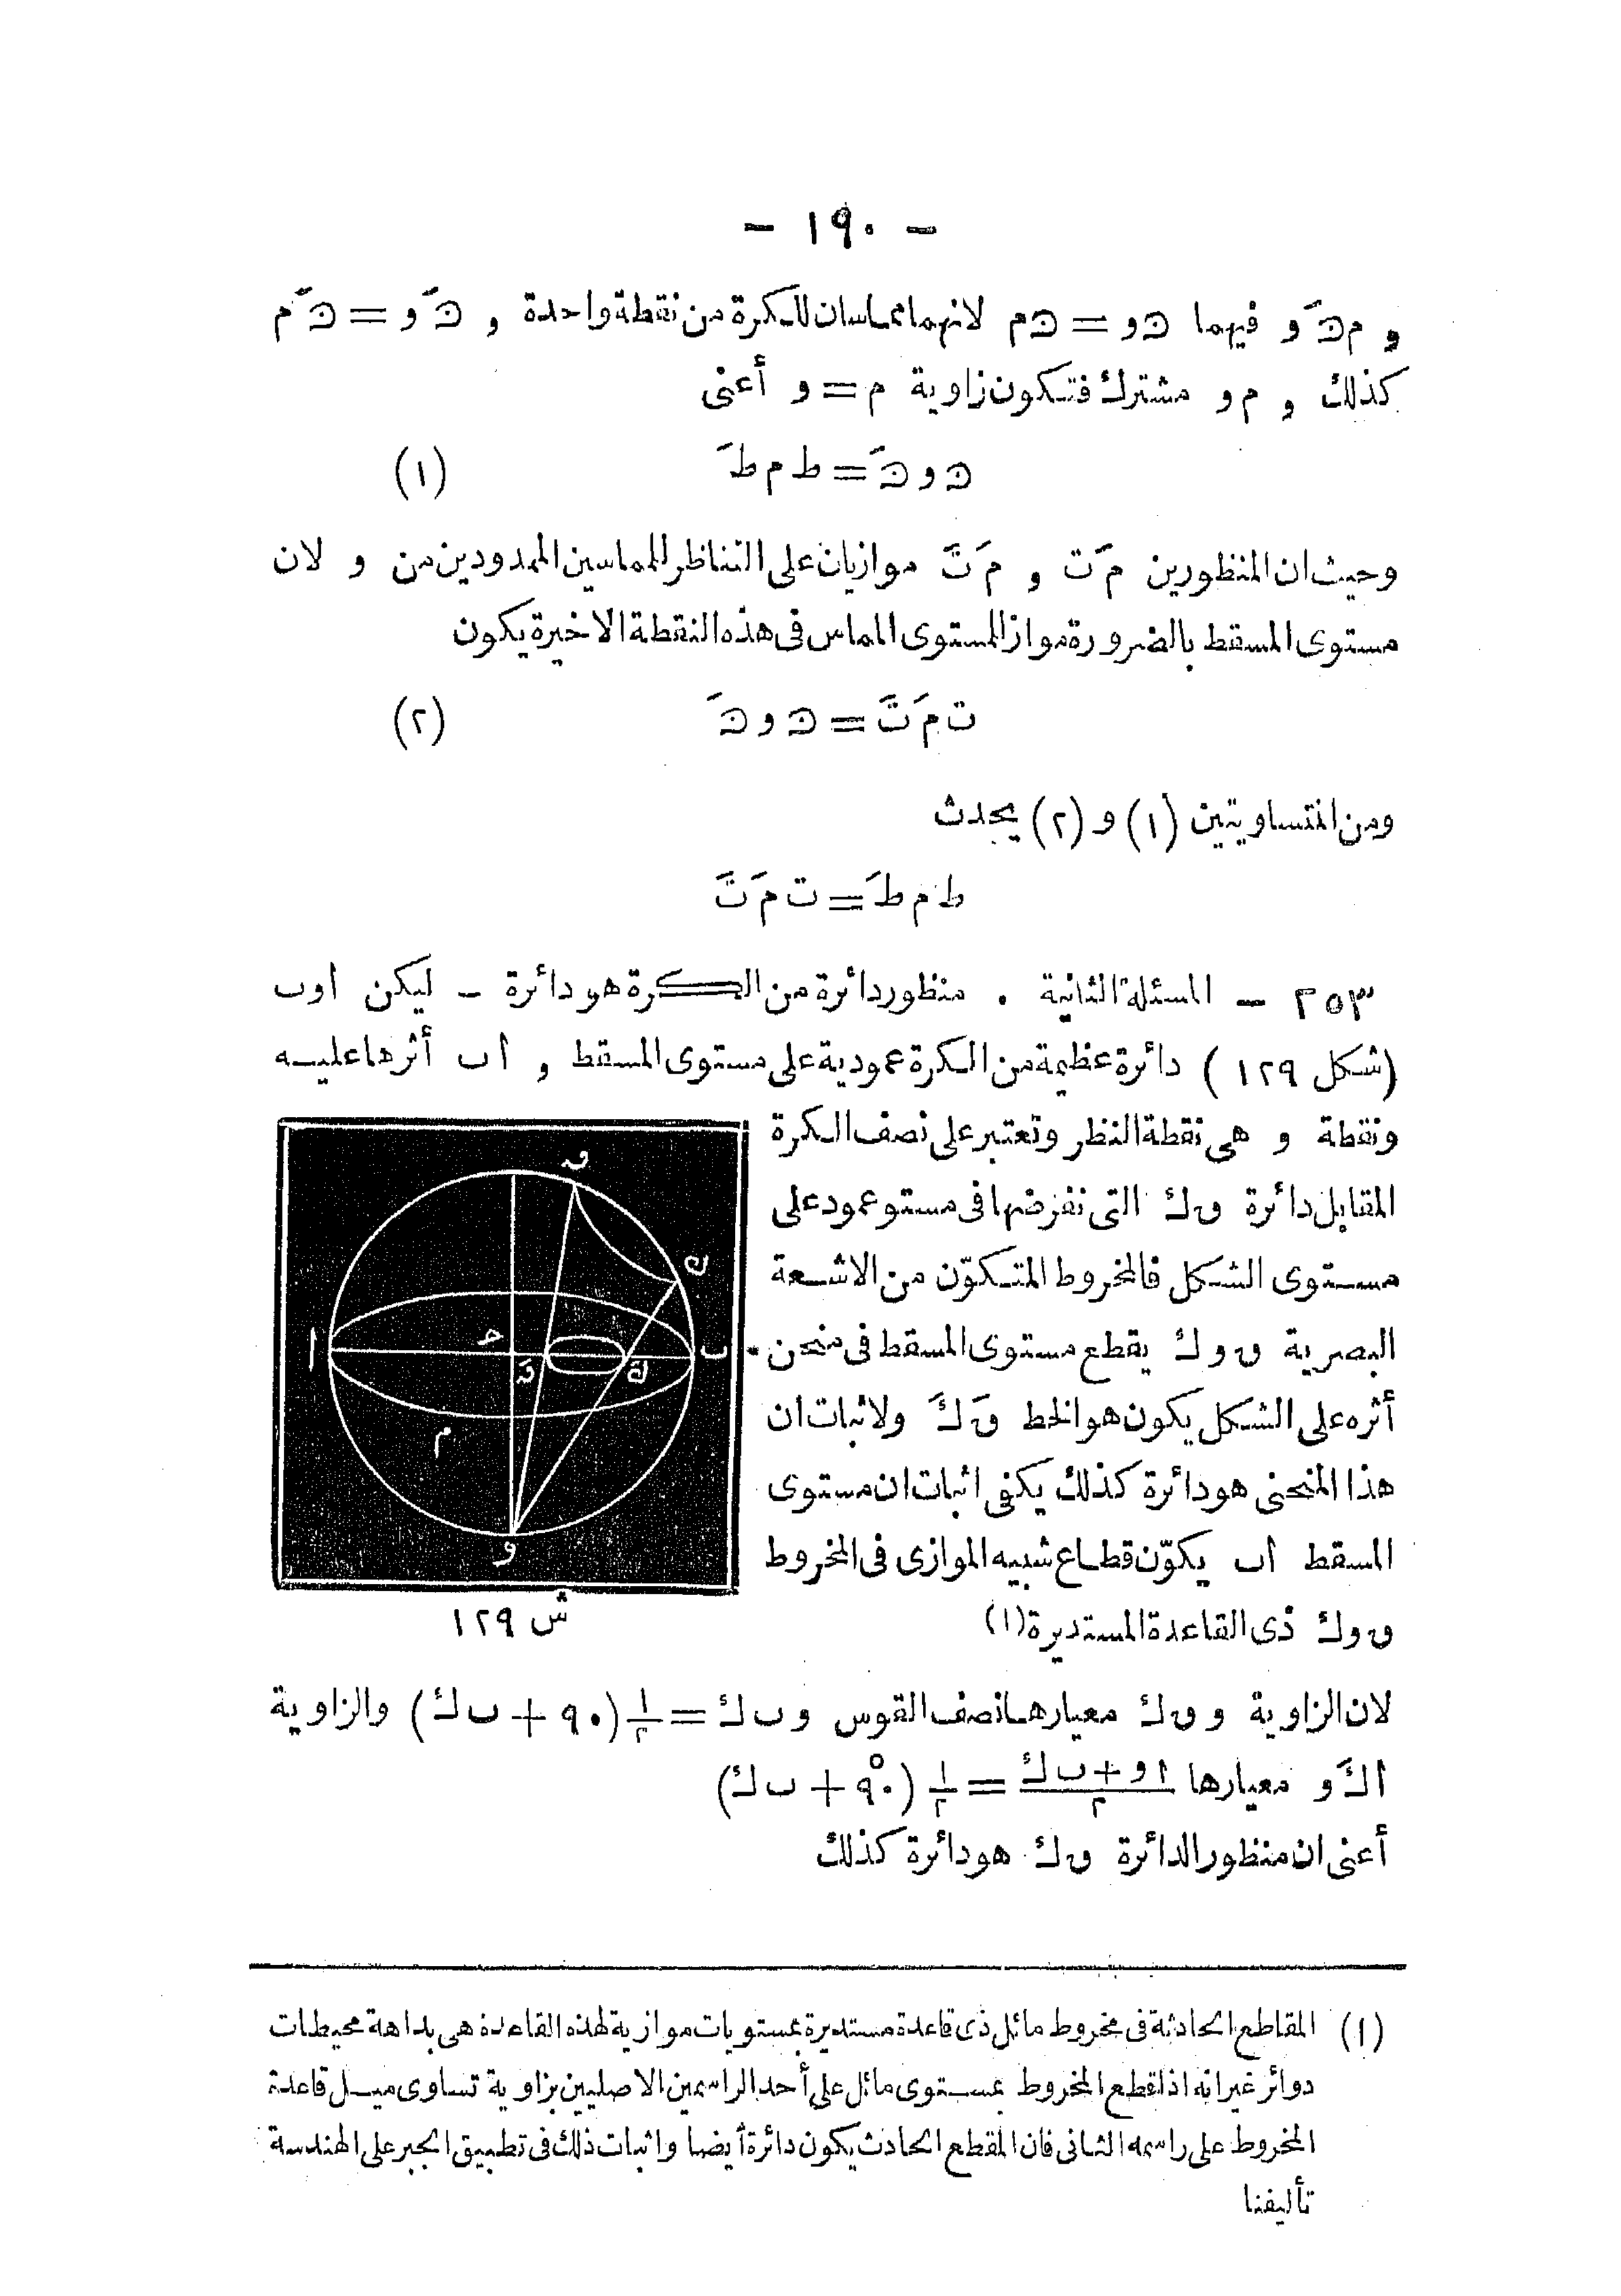 - ١٩٠ -
و م ݢَ و فيهما ݢ و = ݢ م لانهما مماسان للكرة من نقطة واحدة و ݢَ و = ݢَ م
كذلك و م و مشترك فتكون زاوية م = و أعنى
ݢ و ݢَ = ط م طَ (١)
وحيث ان المنظورين مَ ت و مَ تَ موازيان على التناظر للمماسين الممدودين من و لان
مستوى المسقط بالضرورة مواز للمستوى المماس فى هذه النقطة الاخيرة يكون
ت مَ تَ = ݢ و ݢَ (٢)
ومن المتساويتين (١) و (٢) يحدث
ط م طَ = ت مَ تَ
٢٥٣ - المسئلة الثانية . منظور دائرة من الكرة هو دائرة - ليكن اوب
(شكل ١٢٩) دائرة عظيمة من الكرة عمودية على مستوى المسقط و اب أثرها عليه
ونقطة و هى نقطة النظر وتعتبر على نصف الكرة
المقابل دائرة ں ك التى نفرضها فى مستو عمود على
مستوى الشكل فالمخروط المتكوّن من الاشعة
البصرية ں و ك يقطع مستوى المسقط فى منحن
أثره على الشكل يكون هو الخط ںَ كَ ولاثبات ان
هذا المنحنى هو دائرة كذلك يكفى اثبات ان مستوى
المسقط اب يكوّن قطاع شبيه الموازى فى المخروط
ں و ك ذى القاعدة المستديرة (١)
ں
ك
ا
ح
ںَ
كَ
ب
م
و
ش ١٢٩
لان الزاوية و ں ك معيارها نصف القوس و ب ك = ١/٢ (٩٠ + ب ك) والزاوية
ا كَ و معيارها (ا و + ب ك)/٢ = ١/٢ (٩٠° + ب ك)
أعنى ان منظور الدائرة ں ك هو دائرة كذلك
(١) المقاطع الحادثة فى مخروط مائل ذى قاعدة مستديرة بمستويات موازية لهذه القاعدة هى بداهة محيطات
دوائر غير انه اذا قطع المخروط بمستوى مائل على أحد الراسمين الاصليين بزاوية تساوى ميل قاعدة
المخروط على راسمه الثانى فان المقطع الحادث يكون دائرة أيضا واثبات ذلك فى تطبيق الجبر على الهندسة
تأليفنا